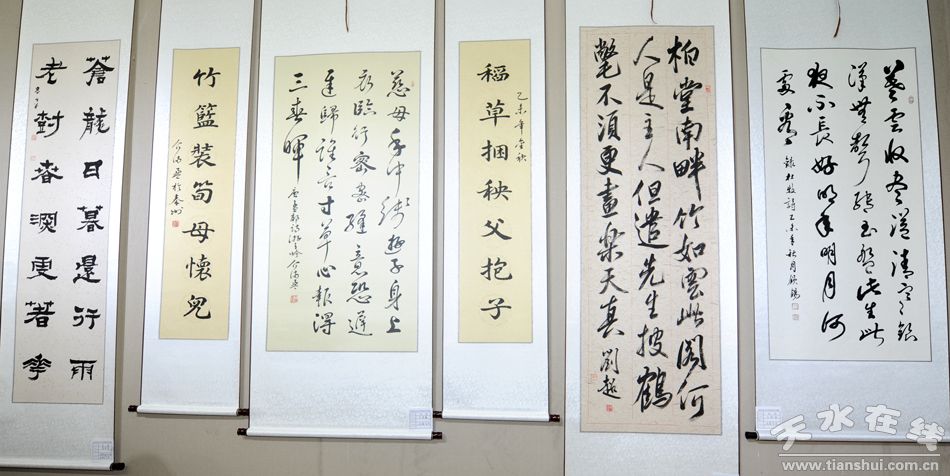 暮云收尽溢清寒银
漢無聲转玉盘此生此
夜不长好明年明月何
處看
柏堂南畔竹如雲此閣何
人是主人但遣先生披鶴
氅不須更畫樂天真 劉超
乙未年金秋
稻草捆秧父抱子
慈母手中線遊子身上
衣臨行密密縫意恐遲
遲歸誰言寸草心報得
三春暉
竹籃裝筍母懷兒
蒼龍日暮還行雨
老樹春深更著花
天水在线
www.tianshui.com.cn